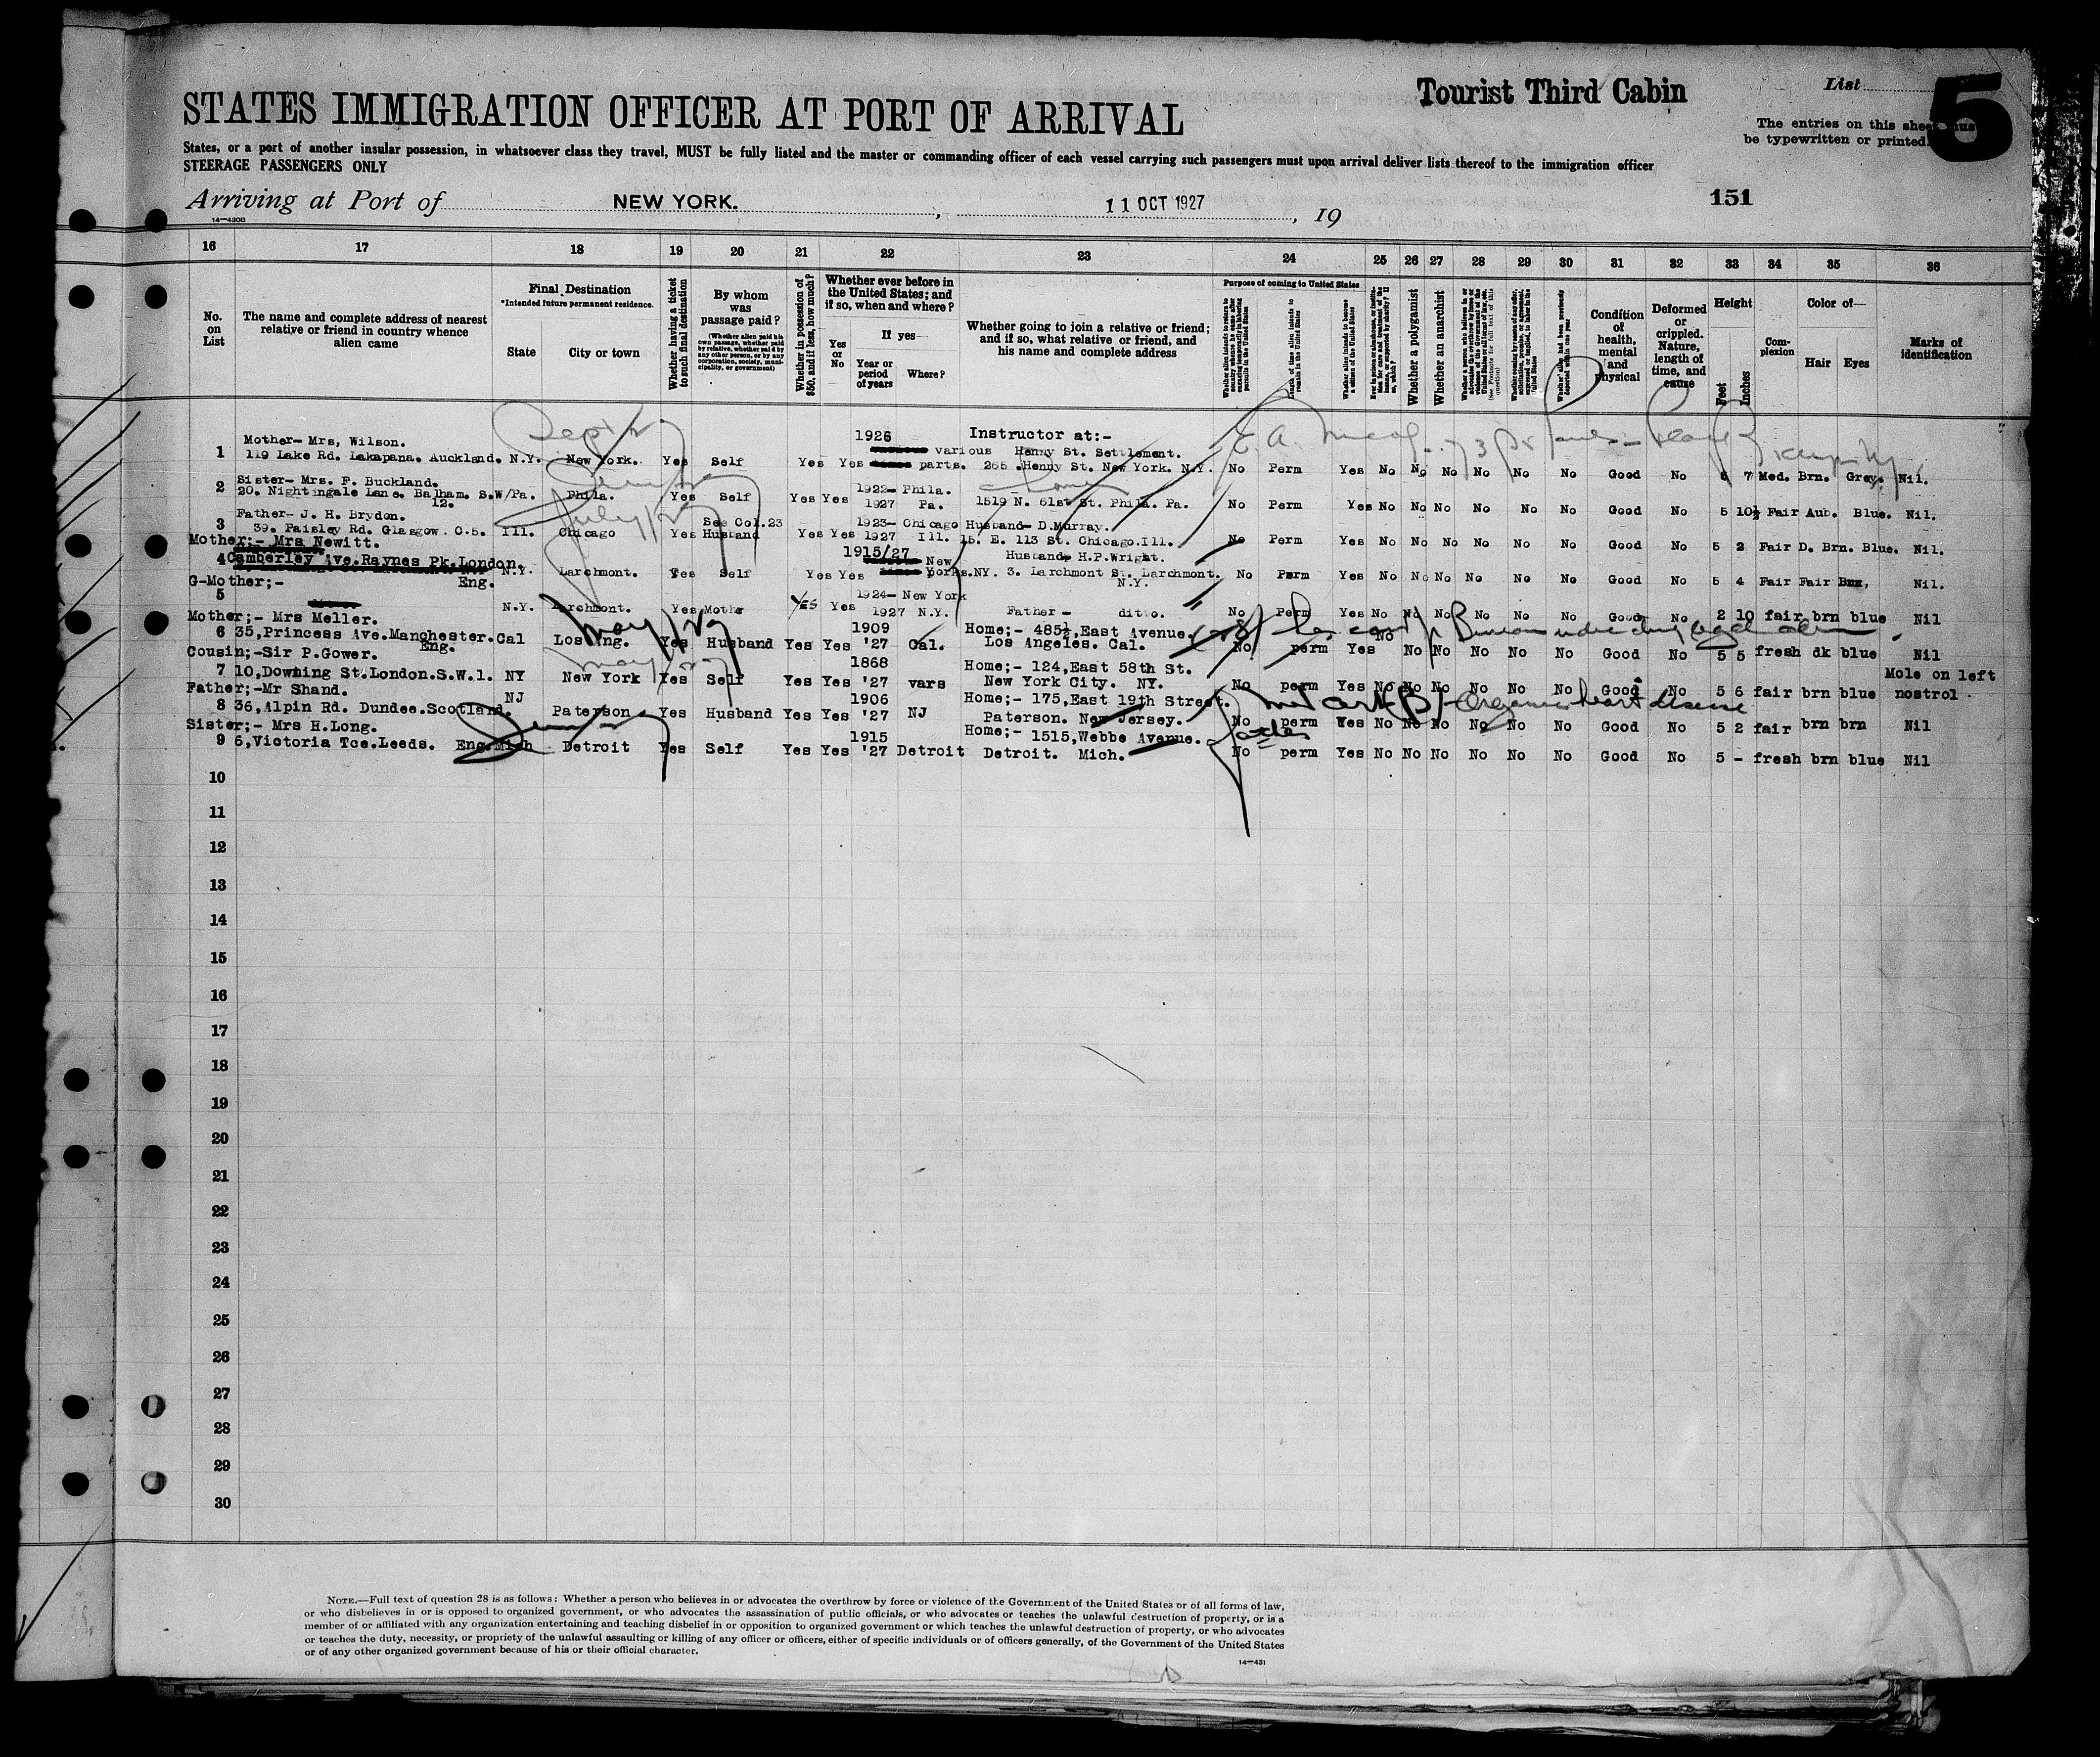 Tourist Third Cabin
List
5
STATES IMMIGRATION OFFICER AT PORT OF ARRIVAL
The entries on this sheet must
be typewritten or printed.
States, or a port of another insular possession, in whatsoever class they travel, MUST be fully listed and the master or commanding officer of each vessel carrying such passengers must upon arrival deliver lists thereof to the immigration officer
STEERAGE PASSENGERS ONLY
Arriving at Port of NEW YORK. , 11 OCT 1927 , 19
151
16 17 18 19 20 21 22 23 24 25 26 27 28 29 30 31 32 33 34 35 36
No. on List
The name and complete address of nearest relative or friend in country whence alien came
Final Destination
*Intended future permanent residence.
State City or town
Whether having a ticket to such final destination
By whom was passage paid?
(Whether alien paid his own passage, whether paid by relative, whether paid by any other person, or by any corporation, society, municipality, or government)
Whether in possession of $50, and if less, how much?
Whether ever before in the United States; and if so, when and where?
Yes or No
If yes—
Year or period of years
Where?
Whether going to join a relative or friend; and if so, what relative or friend, and his name and complete address
Purpose of coming to United States
Whether a polygamist
Whether an anarchist
Condition of health, mental and physical
Deformed or crippled. Nature, length of time, and cause
Height
Feet Inches
Complexion
Color of—
Hair Eyes
Marks of identification
Mother- Mrs, Wilson. 1926 Instructor at:-
various Henny St. Settlement.
1 119 Lake Rd. Lakapana. Auckland. N.Y. New York. Yes Self Yes Yes parts. 265 .Henny St. New York. N.Y. No Perm Yes No No No No No No Good No 5 7 Med. Brn. Grey. Nil.
Sister- Mrs. F. Buckland. 1922- Phila.
2 20. Nightingale Lane. Balham. S.W/ Pa. Phila. Yes Self Yes Yes 1927 Pa. 1519 N. 61st St. Phila. Pa. No Perm Yes No No No No No No Good No 5 10½ Fair Aub. Blue. Nil.
12.
Father- J. H. Brydon. See Col.23 1923- Chicago Husband- D.Murray.
3 39. Paisley Rd. Glasgow. C.5. Ill. Chicago Yes Husband Yes Yes 1927 Ill. 15. E. 113 St. Chicago.Ill. No Perm Yes No No No No No No Good No 5 2 Fair D. Brn. Blue. Nil.
Mother;- Mrs Newitt. 1915/27 New Husband, H.P.Wright.
4 Camberley Ave.Raynes Pk.London. N.Y. Larchmont. Yes Self Yes Yes York. NY. 3. Larchmont St. Larchmont. No Perm Yes No No No No No No Good No 5 4 Fair Fair Nil.
G-Mother;- Eng. N.Y.
1924- New York
5 N.Y. Larchmont. Yes Mother Yes Yes 1927 N.Y. Father - ditto. No Perm Yes No No No No No No Good No 2 10 fair brn blue Nil
Mother;- Mrs Meller. 1909 Home;- 485½,East Avenue.
6 35,Princess Ave.Manchester. Cal Los Ang. Yes Husband Yes Yes '27 Cal. Los Angeles. Cal. No perm Yes No No No No No No Good No 5 5 fresh dk blue Nil
Eng.
Cousin;-Sir P.Gower. 1868 Home;- 124,East 58th St. Mole on left
7 10,Downing St.London.S.W.1. NY New York Yes Self Yes Yes '27 vars New York City. NY. No perm Yes No No No No No No Good No 5 6 fair brn blue nostrol
Father;-Mr Shand. NJ 1906 Home;- 175,East 19th Street. Organic heart disease
8 36,Alpin Rd. Dundee.Scotland. Paterson Yes Husband Yes Yes '27 NJ Paterson. New Jersey. No perm Yes No No No No No No Good No 5 2 fair brn brn Nil
Sister;- Mrs H.Long. 1915 Home;- 1515,Webbe Avenue.
9 6,Victoria Tce.Leeds. Eng. Mich Detroit Yes Self Yes Yes '27 Detroit Detroit. Mich. No perm Yes No No No No No No Good No 5 - fresh brn blue Nil
10
11
12
13
14
15
16
17
18
19
20
21
22
23
24
25
26
27
28
29
30
NOTE.—Full text of question 28 is as follows: Whether a person who believes in or advocates the overthrow by force or violence of the Government of the United States or of all forms of law,
or who disbelieves in or is opposed to organized government, or who advocates the assassination of public officials, or who advocates or teaches the unlawful destruction of property, or is a
member of or affiliated with any organization entertaining and teaching disbelief in or opposition to organized government or which teaches the unlawful destruction of property, or who advocates
or teaches the duty, necessity, or propriety of the unlawful assaulting or killing of any officer or officers, either of specific individuals or of officers generally, of the Government of the United States
or of any other organized government because of his or their official character.
14—431